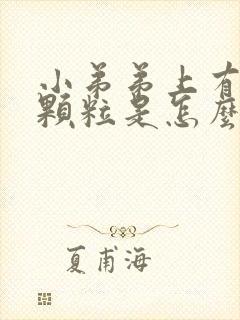 小弟弟上有
顆粒是怎麼
夏甫海